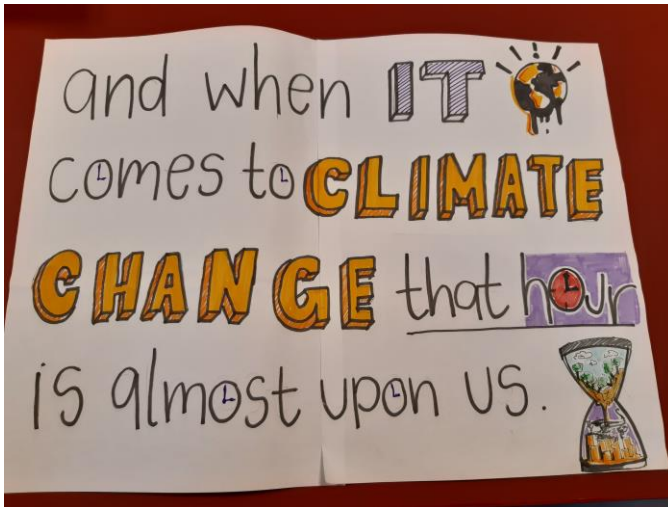 and when IT
comes to CLIMATE
CHANGE that hour
is almost upon us.